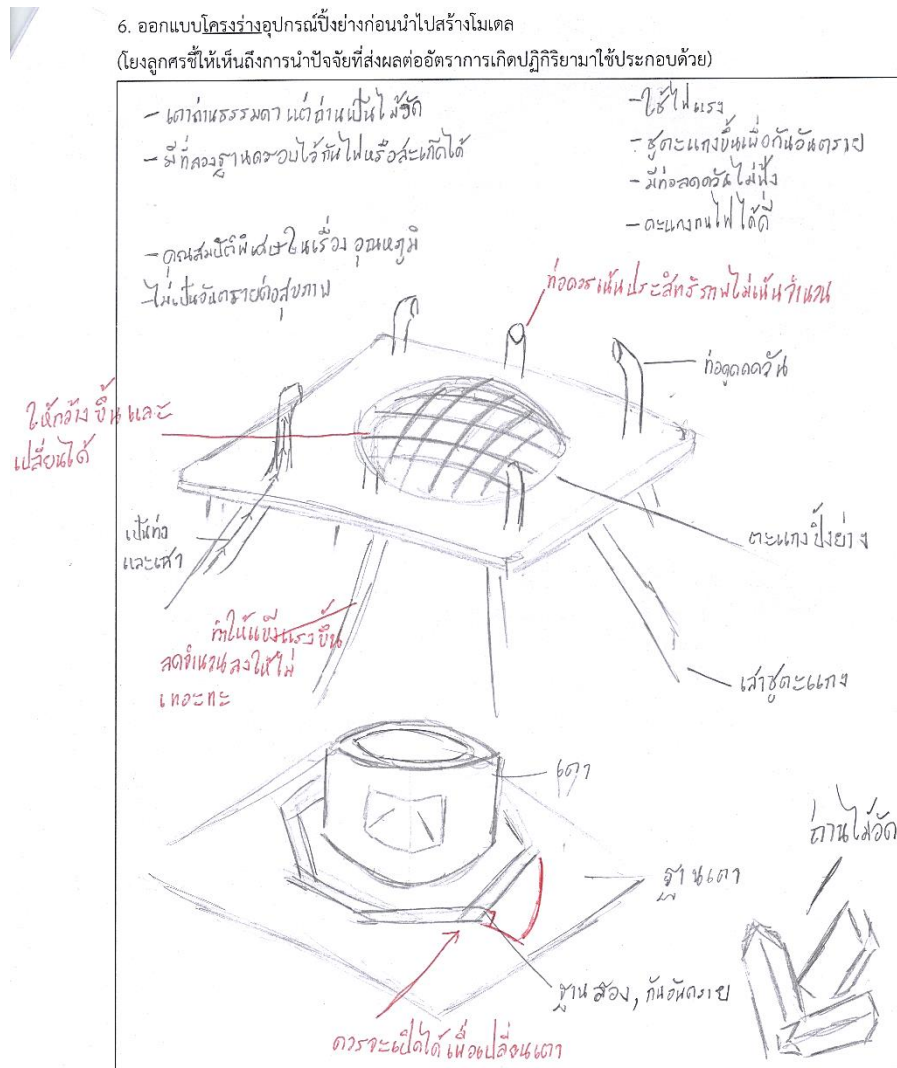 6. ออกแบบโครงร่างอุปกรณ์ปิ้งย่างก่อนนำไปสร้างโมเดล
(โยงลูกศรชี้ให้เห็นถึงการนำปัจจัยที่ส่งผลต่ออัตราการเกิดปฏิกิริยามาใช้ประกอบด้วย)
- เตาถ่านธรรมดา แต่ถ่านเป็นไม้อัด
- มีที่ลองฐานครอบไว้กันไฟหรือสะเก็ดได้
- คุณสมบัติพิเศษในเรื่อง อุณหภูมิ
- ไม่เป็นอันตรายต่อสุขภาพ
- ใช้ไฟแรง
- ชูตะแกงขึ้นเพื่อกันอันตราย
- มีท่อลดควันไม่ฟุ้ง
- ตะแกงทนไฟได้ดี
ท่อควรเน้นประสิทธิภาพไม่เน้นจำนวน
ท่อดูดควัน
ให้กว้างขึ้นและ
เปลี่ยนได้
เป็นท่อ
และเสา
ตะแกงปิ้งย่าง
ทำให้แข็งแรงขึ้น
ลดจำนวนลงให้ไม่
เกะกะ
เสาชูตะแกง
เตา
ถ่านไม้อัด
ฐานเตา
ฐานสอง, กันอันตราย
ควรจะเปิดได้เพื่อเปลี่ยนเตา